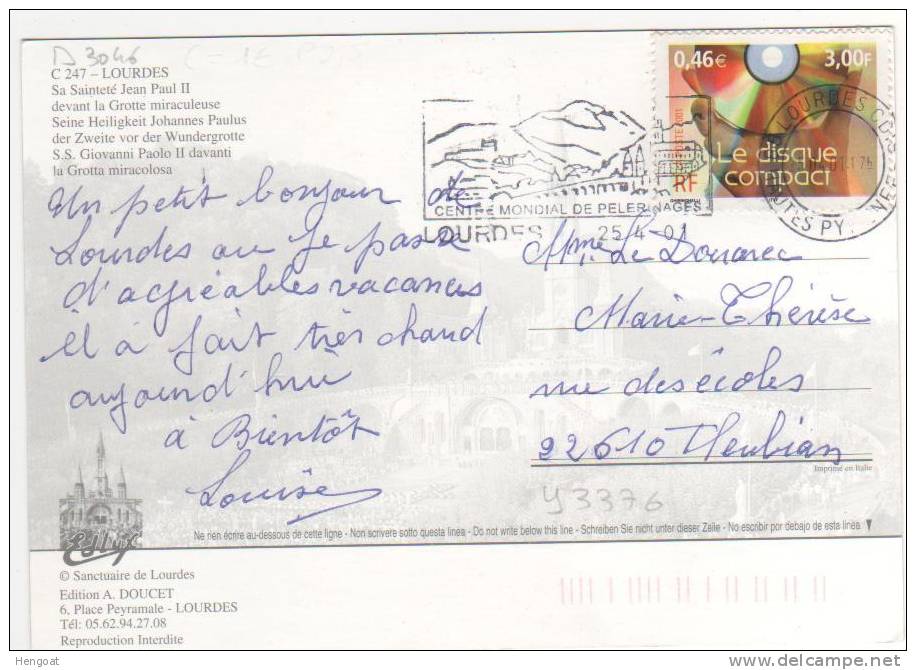 D 3046
C 247 – LOURDES
Sa Sainteté Jean Paul II
devant la Grotte miraculeuse
Seine Heiligkeit Johannes Paulus
der Zweite vor der Wundergrotte
S.S. Giovanni Paolo II davanti
la Grotta miracolosa
0,46€ 3,00F
LA POSTE 2001
Le disque
compact
RF
LOURDES
HTES PY.
CENTRE MONDIAL DE PELERINAGES
LOURDES 25-4-01
Un petit bonjour de
Lourdes ou je passe
d'agréables vacances
il à fait très chaud
aujourd'hui
à Bientôt
Louise
Mme Le Douarec
Marie-Thérèse
rue des écoles
22610 Pleubian
Imprimé en Italie
Y3376
Ne rien écrire au-dessous de cette ligne - Non scrivere sotto questa linea - Do not write below this line - Schreiben Sie nicht unter dieser Zeile - No escribir por debajo de esta linea
© Sanctuaire de Lourdes
Edition A. DOUCET
6, Place Peyramale - LOURDES
Tél: 05.62.94.27.08
Reproduction Interdite
Hengoat
delcampe.net